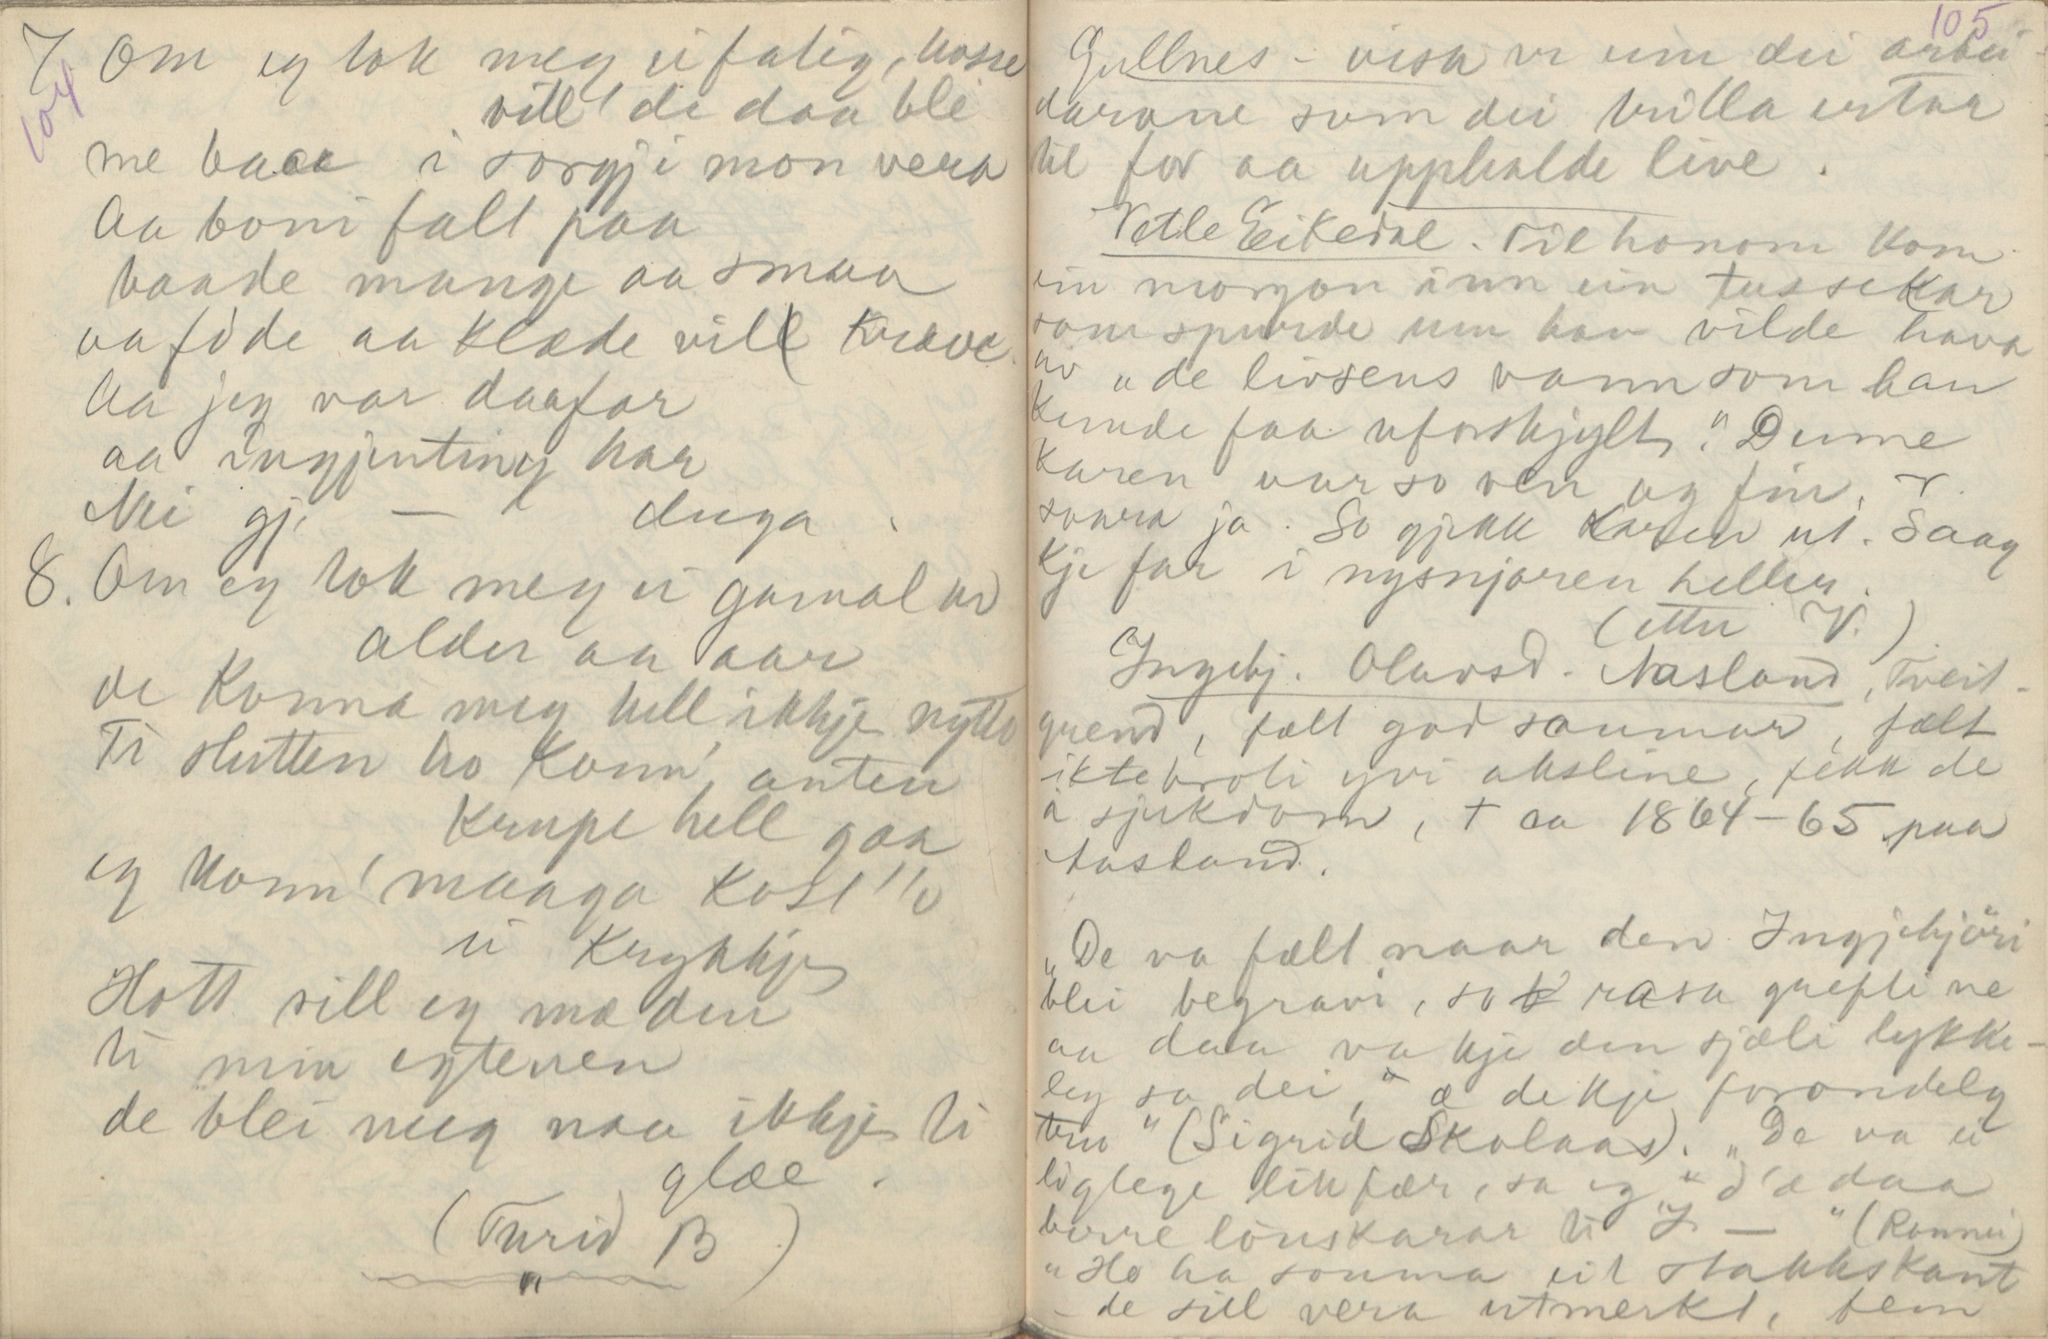 104
7. Om eg tok meg ei fatig, hosse
vill' de daa bli
me baae i sorgji mon vera
Aa boni falt paa
baade mange aa smaa
aa föde aa klæde vill kræve.
Aa jeg var daafor
aa ingjenting har
Nei gj. — duga.
8. Om eg tok meg ei gamal av
alder aa aar
de konna meg hell ikkje nytte
Ti slutten ho konn' anten
krupe hell gaa
eg konn' maaga kost'o
ei krykkje
Hott sill eg mæ den
ti min egteven
de blei meg naa ikkje ti
glæe.
(Turid B)
"
105
Gullnes-visa er um dei arbei-
darane som dei trilla ertar
til for aa upphalde live.
Vetle Eikedal. Til honom kom
ein morgon inn ein tussekar
som spurde um han vilde hava
av "de livsens vann som han
kunde faa uforskjylt." Denne
karen var so ven og fin, V.
svara ja. So gjekk karen ut. Saag
kje far i nysnjoren heller.
(etter V.)
Ingebj. Olavsd. Aasland, Tveit-
grend, fælt god saumar, fælt
iktebroti yvi aksline, fekk de
i sjukdom, † ca 1864-65 paa
Aasland.
"De va fælt naar den Ingjebjöri
blei begravi, so rasa grefti ne
aa daa va kje den sjæli lykke-
leg sa dei, " æ de kje forondeleg
" (Sigrid Skolaas). "De va ei
liglege likfær, sa eg, " d'æ daa
berre lönskarar ti I — " (Ronnei)
"Ho ha souma eit stakkskant
- de sill vera utmerkt, fem